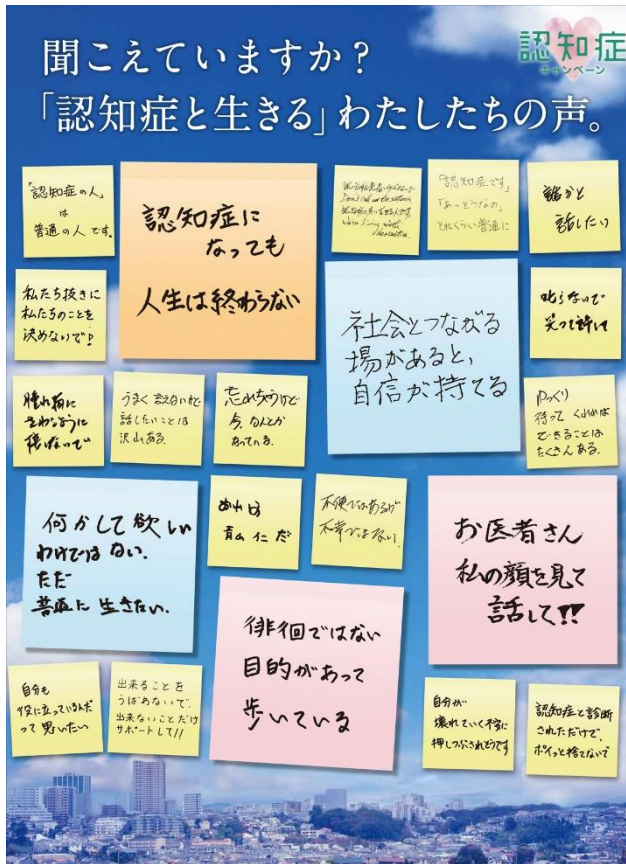 聞こえていますか?
「認知症と生きる」わたしたちの声。
認知症
キャンペーン
「認知症の人」
は
普通の人です。
認知症に
なっても
人生は終わらない
Don't call us the patients.
「認知症です」
「あっそうなの」
それくらい普通に
誰かと
話したい
私たち抜きに
私たちのことを
決めないで!
社会とつながる
場があると、
自信が持てる
叱らないで
笑って許して
腫れ物に
さわるように
接しないで
うまく言えないけど
話したいことは
沢山ある。
忘れちゃうけど
今、なんとか
なっている。
ゆっくり
待ってくれれば
できることは
たくさんある。
何かして欲しい
わけではない.
ただ
普通に生きたい.
おれは
青山 仁 だ
不便ではあるが
不幸ではない.
お医者さん
私の顔を見て
話して!!
徘徊ではない
目的があって
歩いている
自分も
役に立っているんだ
って思いたい
出来ることを
うばわないで、
出来ないことだけ
サポートして!!
自分が
壊れていく不安に
押しつぶされそうです
認知症と診断
されただけで、
ポイッと捨てないで